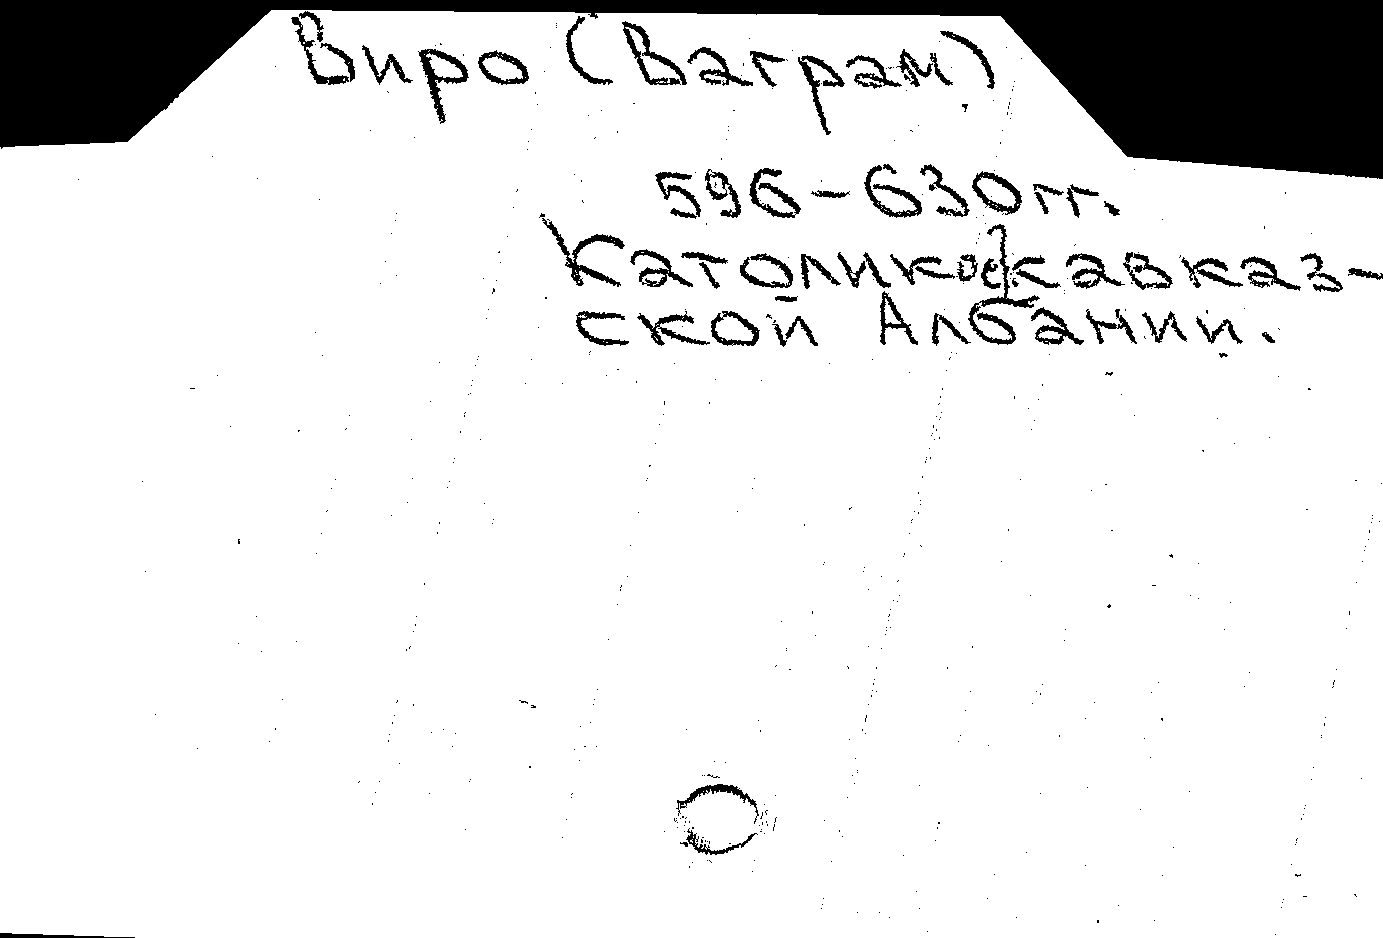 Виро (Ваграм)
596-630гг.
Католикос кавказ-
ской Албании.